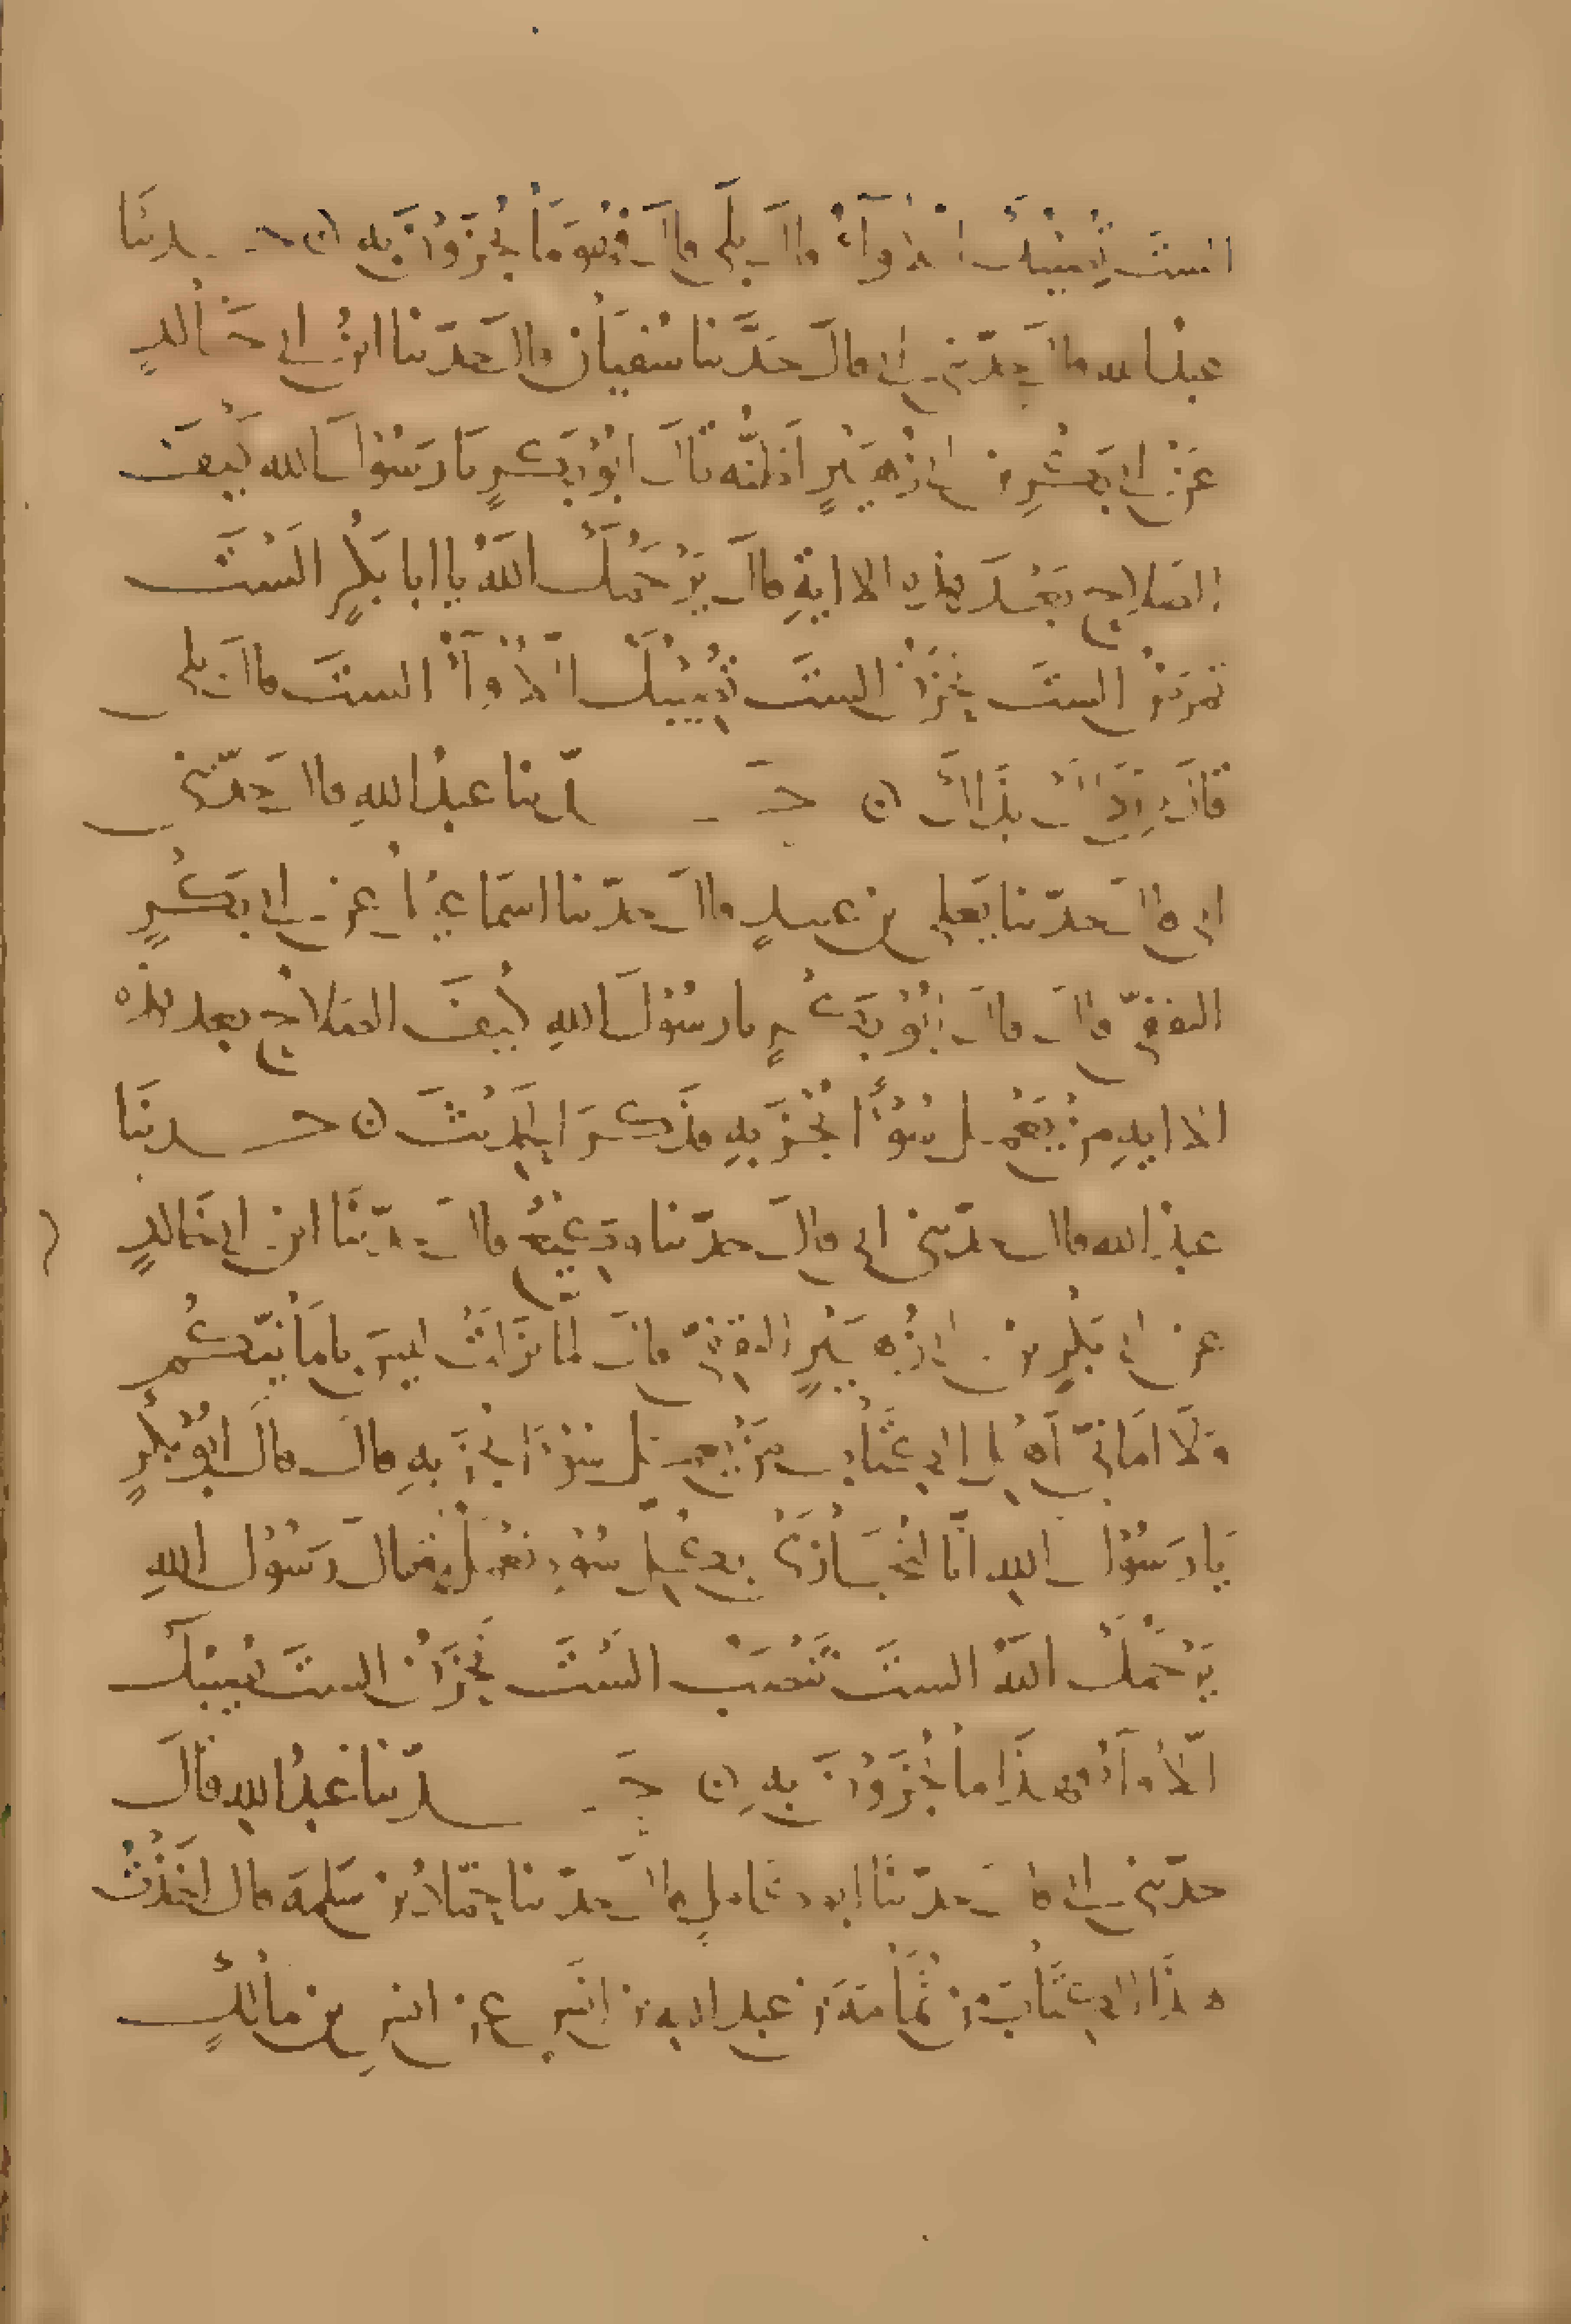 الست تصيبك اللأواء قال بلى قال فهو ما تجزون به ه حدثنا
عبد الله قال حدثني ابي قال حدثنا سفيان قال حدثنا ابن ابي خالد
عن ابي بكر بن ابي زهير اظنه قال ابو بكر يا رسول الله كيف
الصلاح بعد هذه الاية قال يرحمك الله يا ابا بكر الست
تمرض الست تحزن الست تصيبك اللأواء الست قال بلى
قال فان ذاك بذاك ه حدثنا عبد الله قال حدثني
ابي قال حدثنا يعلى بن عبيد قال حدثنا اسماعيل عن ابي بكر
الثقفي قال قال ابو بكر يا رسول الله كيف الصلاح بعد هذه
الاية من يعمل سوءا يجز به فذكر الحديث ه حدثنا
عبد الله قال حدثني ابي قال حدثنا وكيع قال حدثنا ابن ابي خالد
عن ابي بكر بن ابي زهير الثقفي قال لما نزلت ليس بامانيكم
ولا اماني اهل الكتاب من يعمل سوءا يجز به قال قال ابو بكر
يا رسول الله انا لنجازى بكل سوء نعمله فقال رسول الله
يرحمك الله الست تنصب الست تحزن الست تصيبك
اللأواء فهذا ما تجزون به ه حدثنا عبد الله قال
حدثني ابي قال حدثنا ابو كامل قال حدثنا حماد بن سلمة قال اخذت
هذا الكتاب من ثمامة بن عبد الله بن انس عن انس بن مالك